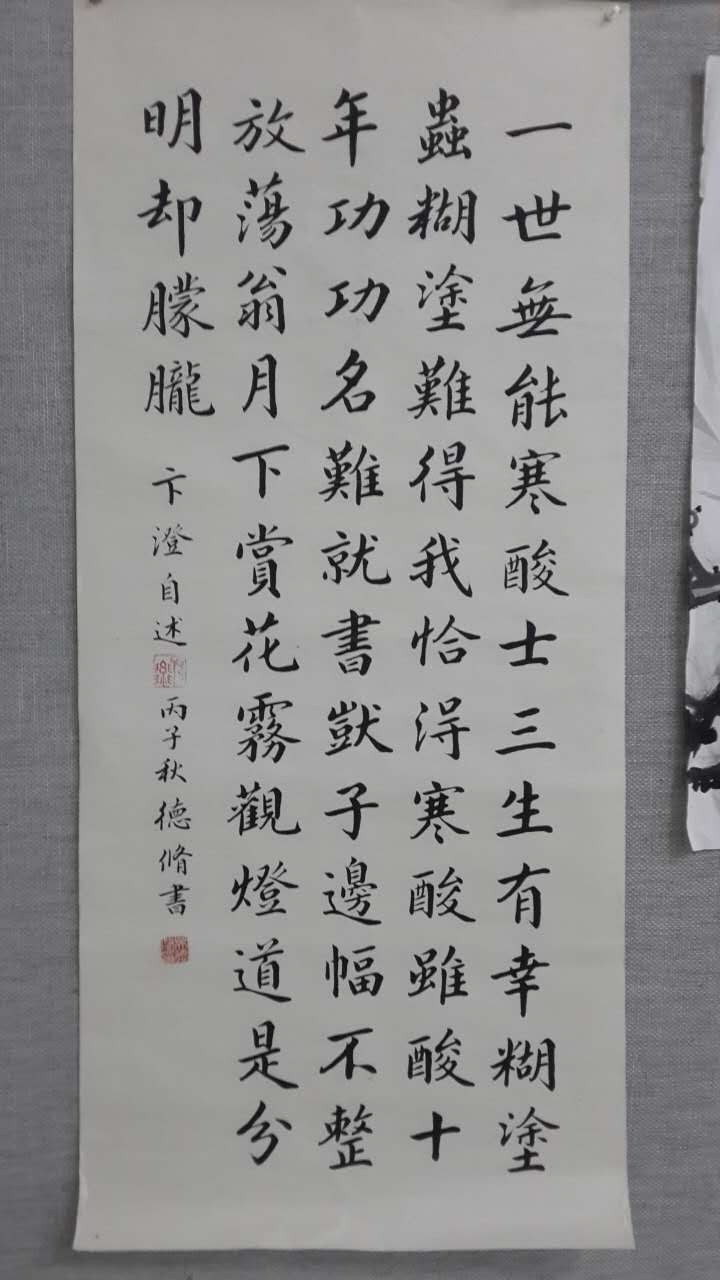 一世無能寒酸士三生有幸糊塗
蟲糊塗難得我恰得寒酸雖酸十
年功功名難就書獃子邊幅不整
放蕩翁月下賞花霧觀燈道是分
明却朦朧
卞澄自述
丙子秋德脩書